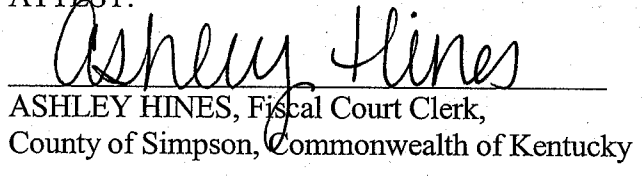 ATTEST:
Ashley Hines
ASHLEY HINES, Fiscal Court Clerk,
County of Simpson, Commonwealth of Kentucky